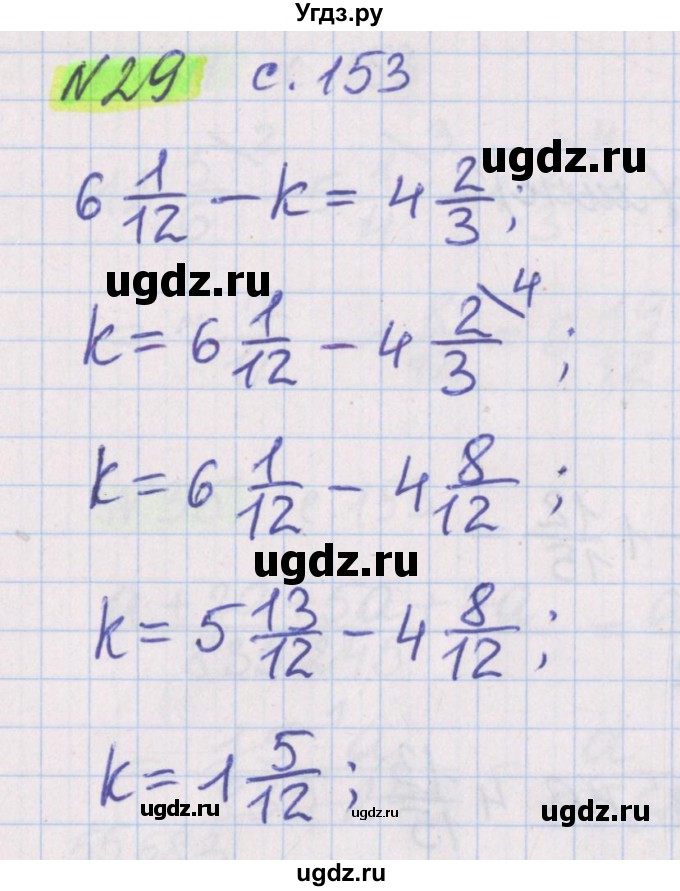 Угдз.ру
N29 с. 153
6 1/12 - k = 4 2/3;
ugdz.ru
ugdz.ru
k = 6 1/12 - 4 2/3 \4;
k = 6 1/12 - 4 8/12;
ugdz.ru
k = 5 13/12 - 4 8/12;
k = 1 5/12;
ugdz.ru
ugdz.ru
ugdz.ru
ugdz.ru